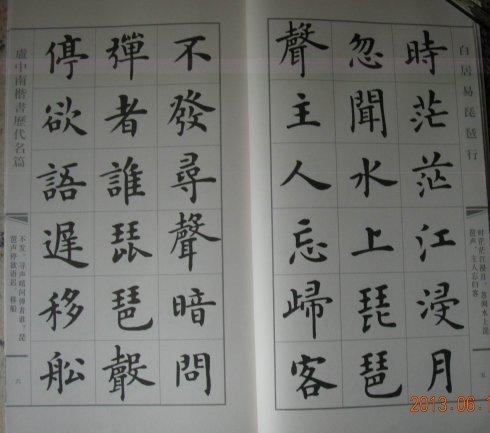 白居易琵琶行
時茫茫江浸月
忽聞水上琵琶
聲主人忘歸客
时茫茫江浸月。忽闻水上琵
琶声,主人忘归客
五
不發尋聲暗問
彈者誰琵琶聲
停欲語遲移船
盧中南楷書歷代名篇
不发。寻声暗问弹者谁?琵
琶声停欲语迟。移船
六
2013.06.1